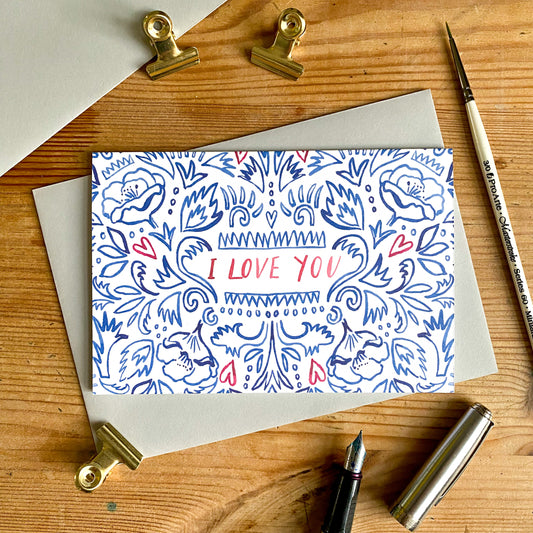 I LOVE YOU
30 ProArte • Masterstroke • Series 60 •